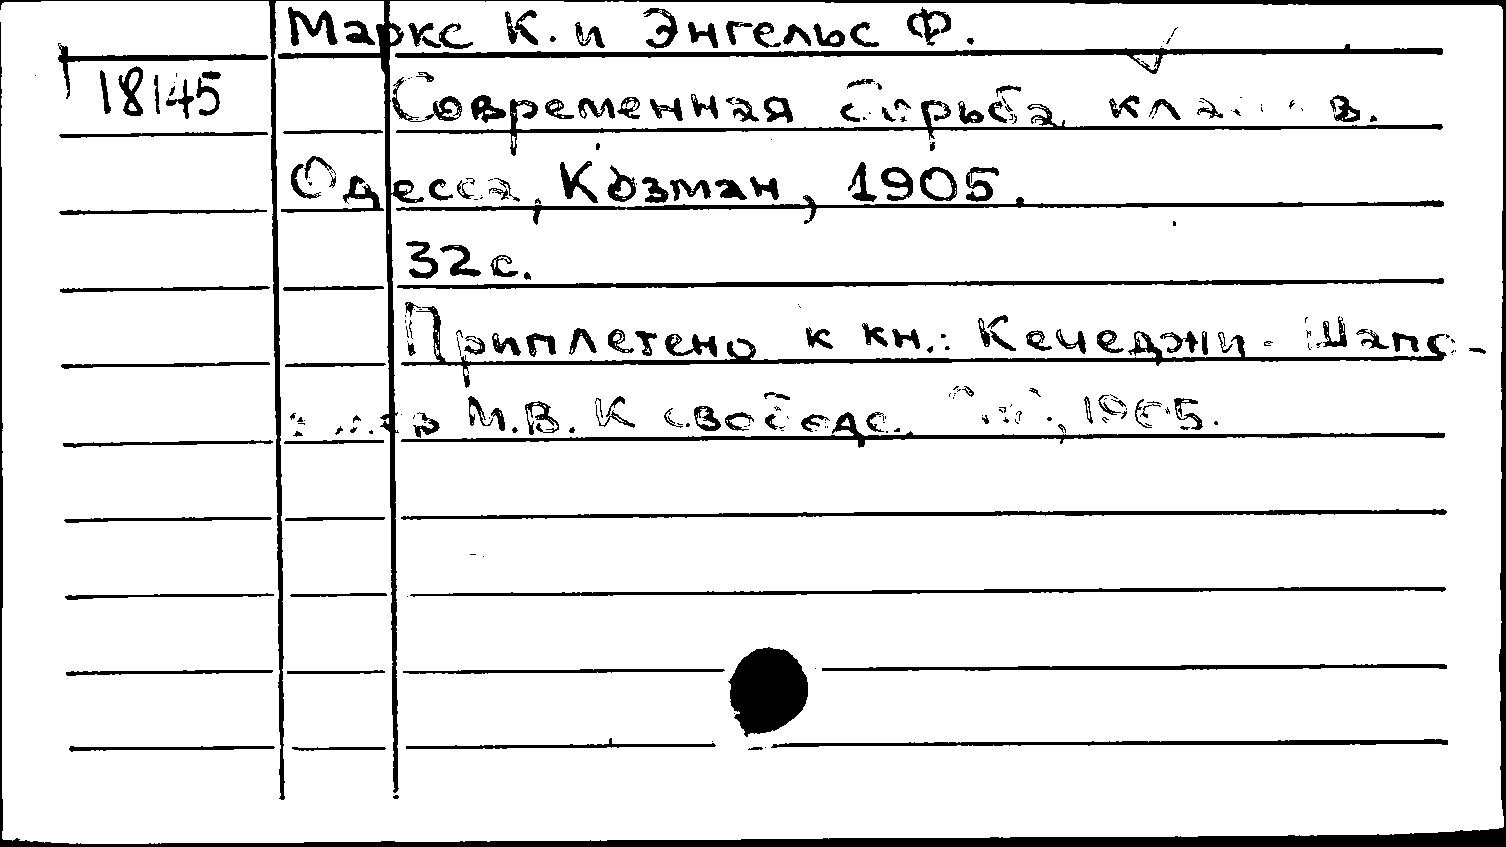 Маркс К. и Энгельс Ф.
18145 Современная борьба классов.
Одесса, Козман, 1905.
32 с.
Приплетено к кн.: Кечеджи-Шапо-
М.В. К свободе. 1905.